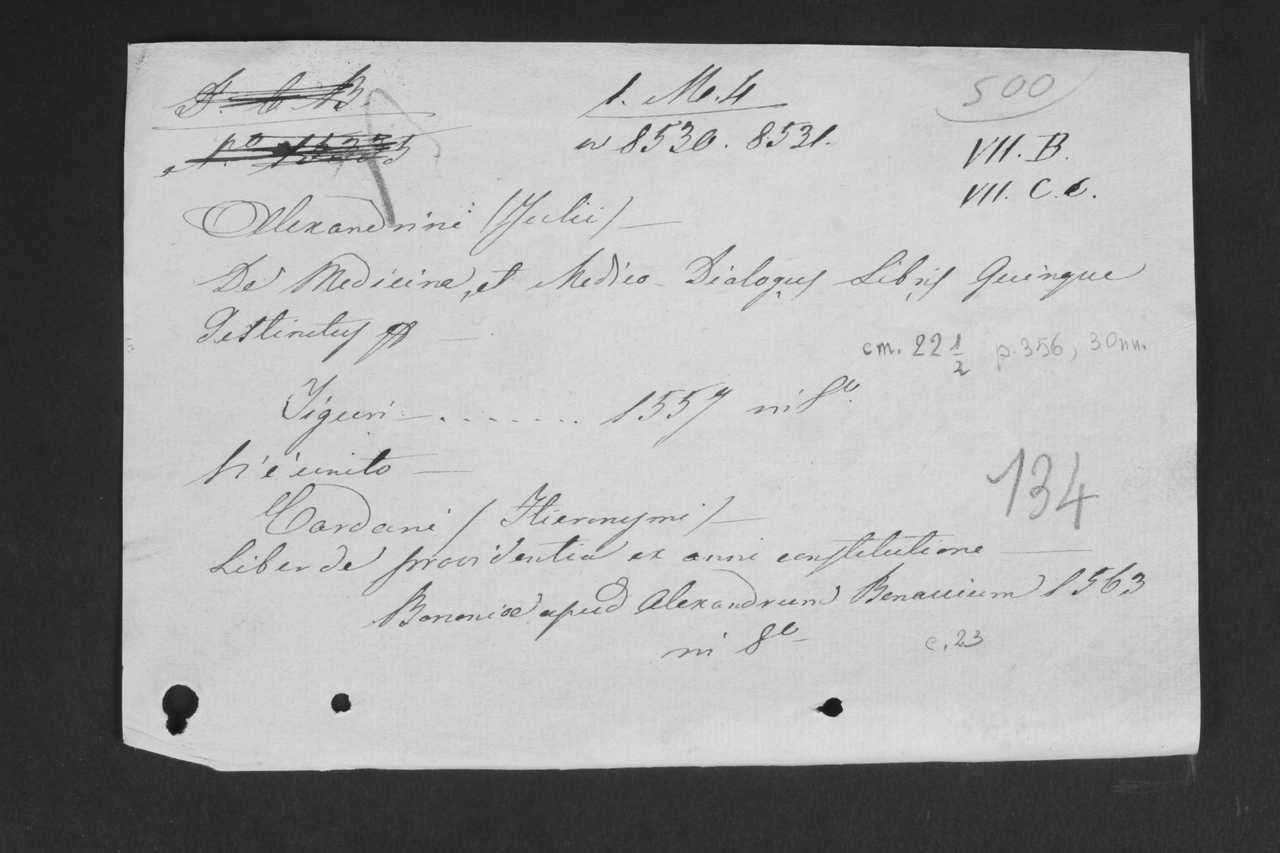 1. M. 4
500
n 8530. 8531.
VII. B.
VII. C. c.
Alexandrini (Julii) —
De Medicina, et Medico Dialogus Libris Quinque
cm. 22 1/2 p. 356, 30 nn.
Tiguri — ....... 1557 in 8º
V'è unito —
134
Cardani (Hieronymi) —
Liber de providentia ex anni constitutione —
Bononiae apud Alexandrum Benacium 1563
in 8º
c. 23